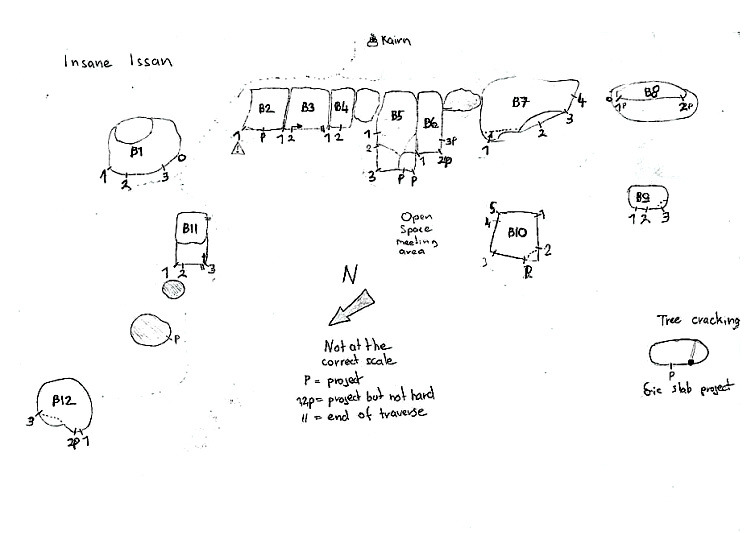 Kairn
Insane Issan
B2 B3 B4 B5 B6 B7 B8
1 P 1 2 1 2 1 2 3 P P 1 2P 3P 1 2 3 4 1P 2P
B1
1 2 3
B9
1 2 3
B11
1 2 3
Open
Space
meeting
area
B10
5 4 1 2 3
N
P
Not at the
correct scale
P = project
12P = project but not hard
11 = end of traverse
Tree cracking
P
Eric slab project
B12
3 2P 1